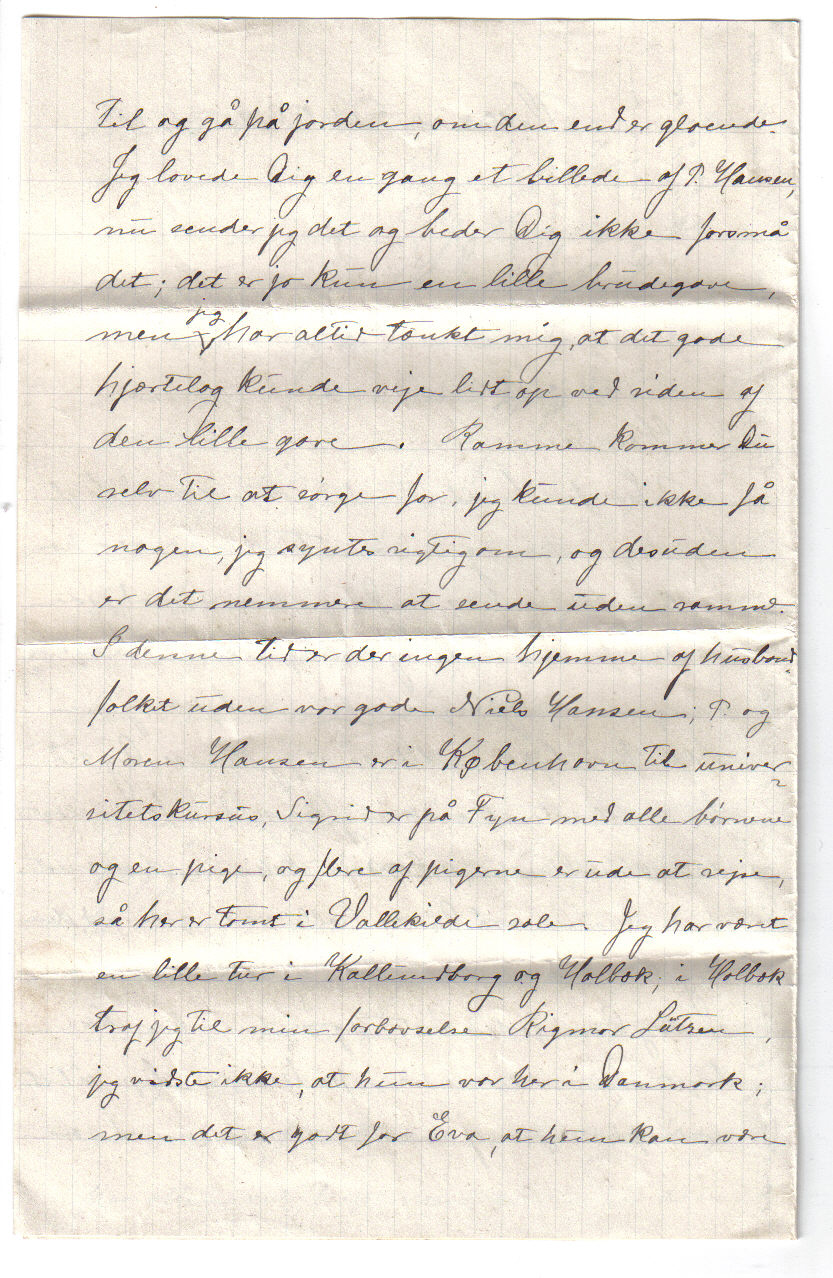 til og gå på jorden, om den end er gloende.
Jeg lovede Dig en gang et billede af P. Hansen,
nu sender jeg det og beder Dig ikke forsmå
det; det er jo kun en lille brudegave,
men jeg har altid tænkt mig, at det gode
hjærtelag kunde veje lidt op ved siden af
den lille gave. Ramme kommer Du
selv til at sørge for, jeg kunde ikke få
nogen, jeg syntes rigtig om, og desuden
er det nemmere at sende uden ramme.
I denne tid er der ingen hjemme af husbond-
folket uden vor gode Niels Hansen; P. og
Maren Hansen er i København til univer-
sitetskursus, Sigrid er på Fyn med alle børnene
og en pige, og flere af pigerne er ude at rejse,
så her er tomt i Vallekilde sale. Jeg har været
en lille tur i Kallundborg og Holbæk; i Holbæk
traf jeg til min forbavselse Rigmor Lützen,
jeg vidste ikke, at hun var her i Danmark;
men det er godt for Eva, at hun kan være